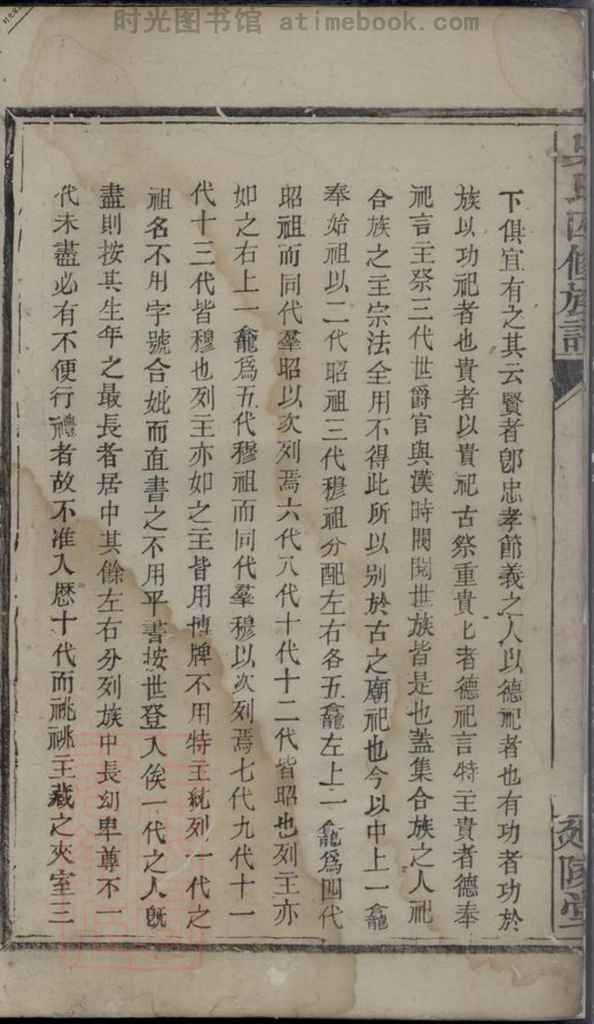 时光图书馆 atimebook.com
四修族譜
延陵堂
下俱宜有之其云賢者卽忠孝節義之人以德祀者也有功者功於
族以功祀者也貴者以貴祀古祭重貴匕者德祀言特主貴者德奉
祀言主祭三代世爵官與漢時閥閱世族皆是也蓋集合族之人祀
合族之主宗法全用不得此所以别於古之廟祀也今以中上一龕
奉始祖以二代昭祖三代穆祖分配左右各五龕左上一龕爲四代
昭祖而同代羣昭以次列焉六代八代十代十二代皆昭也列主亦
如之右上一龕爲五代穆祖而同代羣穆以次列焉七代九代十一
代十三代皆穆也列主亦如之主皆用博牌不用特主純列一代之
祖名不用字號合妣而直書之不用平書按世登入俟一代之人旣
盡則按其生年之最長者居中其餘左右分列族中長幼卑尊不一
代未盡必有不便行禮者故不准入歷十代而祧祧主藏之夾室三